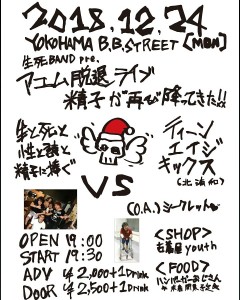 2018.12.24
YOKOHAMA B.B.STREET [MON]
生死BAND pre.
アエム脱退ライブ
精子が再び降ってきた!!
生と死と
性と誠と
精子に捧ぐ
VS
ティーン
エイジ
キックス
(北浦和)
(O.A.) シークレット
OPEN 19:00
START 19:30
ADV ¥2,000+1Drink
DOOR ¥2,500+1Drink
<SHOP>
古着屋 youth
<FOOD>
ハンバーガーおじさん